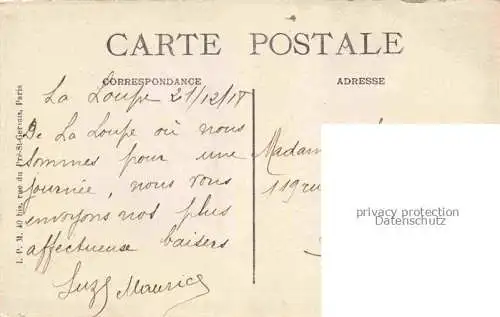 CARTE POSTALE
CORRESPONDANCE
ADRESSE
La Loupe 21/12/18
De La Loupe où nous
sommes pour une
journée, nous vous
envoyons nos plus
affectueuse baisers
Suz Maurice
Madam
119 ru
privacy protection
Datenschutz
I. P. M. 40 bis, rue du Pré-St-Gervais, Paris